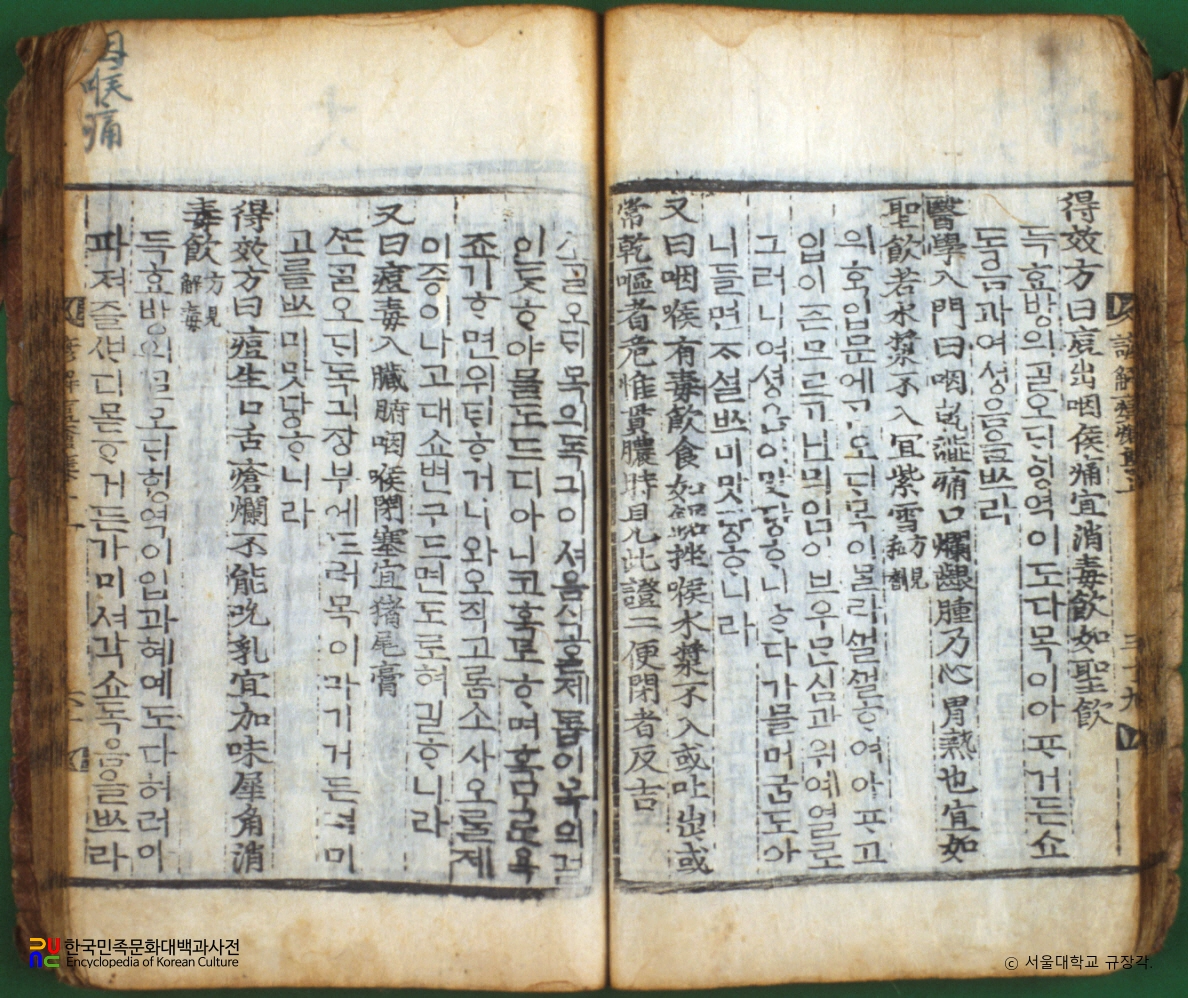 得效方曰痘出咽侯痛宜消毒飮如聖飮
득효방의ᄀᆞᆯ오ᄃᆡ힝역이도다목이아프거든쇼
독음과여셩음을ᄡᅳ라
醫學入門曰咽乾澁痛口爛齦腫乃心胃熱也宜如
聖飮若水漿不入宜紫雪方見
의혹입문에ᄀᆞᆯ오ᄃᆡ목이ᄆᆞᆯ라셜셜ᄒᆞ여아프고
입이즌므르고닛믜임이브으믄심과위예열로
그러니여셩음이맛당ᄒᆞ니ᄒᆞ다가믈머굼도아
니들면ᄌᆞ셜ᄡᅳ미맛당ᄒᆞ니라
又曰咽喉有毒飮食如錐挫喉水漿不入或吐出或
常乾嘔者危惟貫膿時見此證二便閉者反吉
諺解痘瘡集上 三十九
母喉痛
ᄯᅩᄀᆞᆯ오ᄃᆡ목의독긔이셔음식
인ᄃᆞᆺᄒᆞ야믈도드디아니코혹토ᄒᆞ며혹
죠기ᄒᆞ면위ᄐᆡᄒᆞ거니와오직고롬소사오ᄅᆞᆯ제
이증이나고대쇼변구드면도로혀길ᄒᆞ니라
又曰痘毒入臟腑咽喉閉塞宜猪尾膏
ᄯᅩᄀᆞᆯ오ᄃᆡ독긔장부에드러목이마키거든뎌미
고ᄅᆞᆯᄡᅳ미맛당ᄒᆞ니라
得效方曰痘生口舌瘡爛不能吮乳宜加味犀角消
毒飮方見解毒
득효방의ᄀᆞᆯ오ᄃᆡ힝역이입과혀예도다허러
파져즐ᄲᆞ디몯ᄒᆞ거든가미셔각쇼독음을ᄡᅳ라
한국민족문화대백과사전
Encyclopedia of Korean Culture
ⓒ 서울대학교 규장각.